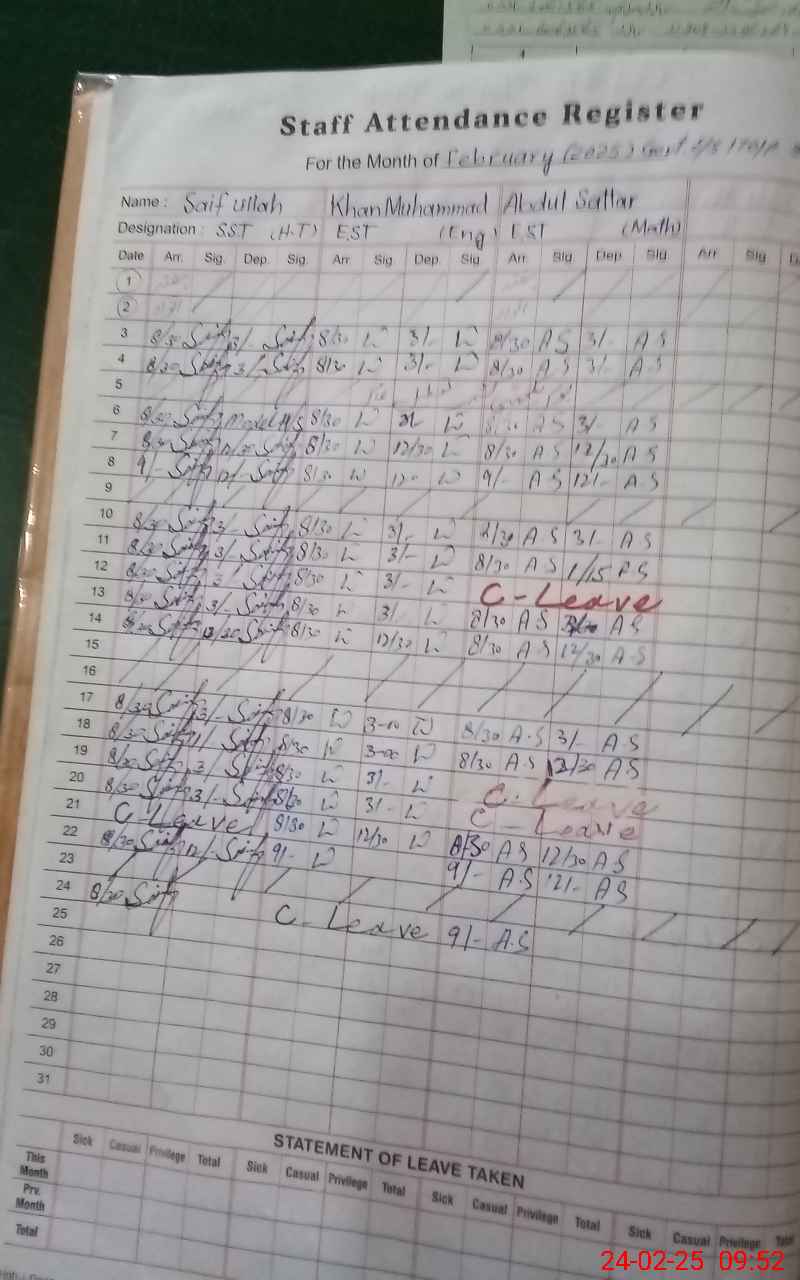 Staff Attendance Register
For the Month of February (2025) Govt
Name : Saif ullah Khan Muhammad Abdul Sattar
Designation : SST (H.T) EST (Eng) EST (Math)
Date Arr. Sig. Dep. Sig. Arr. Sig. Dep. Sig. Arr. Sig. Dep. Sig. Arr. Sig.
1
2
3 8/30 Saif 3/- Saif 8/30 3/- 8/30 A S 3/- A S
4 8/30 Saif 3/- Saif 8/30 3/- 8/30 A S 3/- A S
5
6 8/30 Saif Model H/S 8/30 8/30 A S 3/- A S
7 8/30 Saif 12/30 Saif 8/30 12/30 8/30 A S 12/30 A S
8 9/- Saif 12/- Saif 8/30 12- 9/- A S 12/- A S
9
10 8/30 Saif 3/- Saif 8/30 3/- 8/30 A S 3/- A S
11 8/30 Saif 3/- Saif 8/30 3/- 8/30 A S 1/15 A S
12 8/30 Saif 3/- Saif 8/30 3/- C-Leave
13 8/30 Saif 3/- Saif 8/30 3/- 8/30 A S A S
14 8/30 Saif 12/30 Saif 8/30 12/30 8/30 A S 12/30 A S
15
16
17 8/30 Saif 3/- Saif 8/30 3-00 8/30 A.S 3/- A.S
18 8/30 Saif Saif 8/30 3-00 8/30 A S A S
19 8/30 Saif 3/- Saif 8/30 3/- C-Leave
20 8/30 Saif 3/- Saif 8/30 3/- C-Leave
21 C-Leave 8/30 12/30 8/30 A S 12/30 A S
22 8/30 Saif 12/- Saif 9/- 9/- A.S 12/- A S
23
24 8/30 Saif C-Leave 9/- A.S
25
26
27
28
29
30
31
STATEMENT OF LEAVE TAKEN
Sick Casual Privilege Total Sick Casual Privilege Total Sick Casual Privilege Total Sick Casual Privilege Total
This Month
Prv. Month
Total
24-02-25 09:52